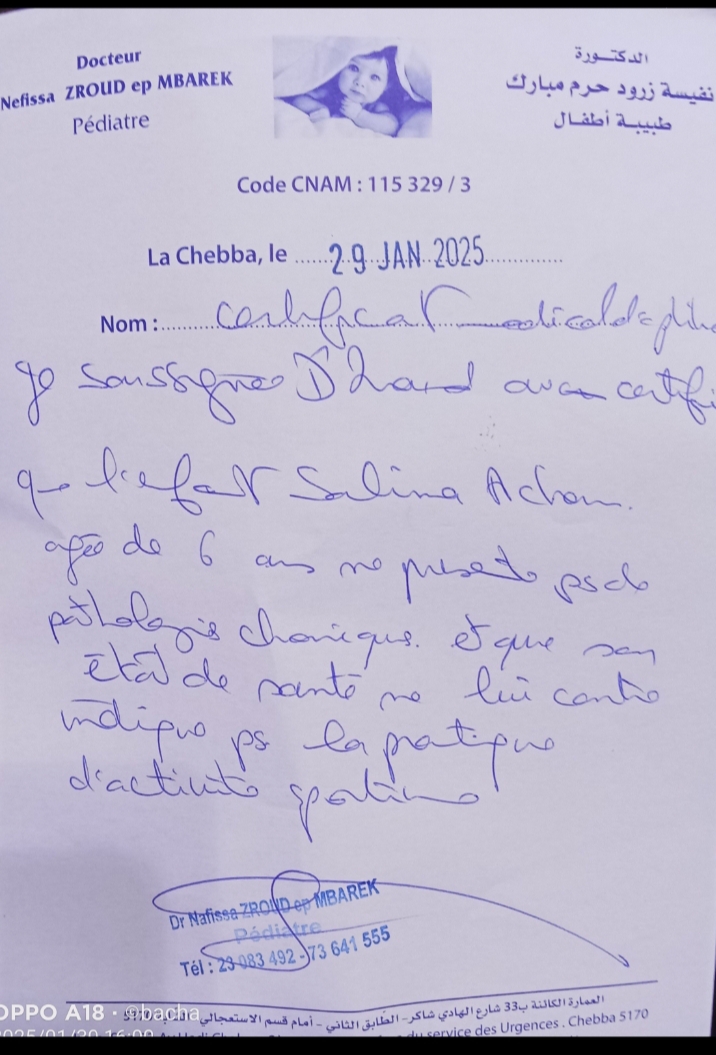 Docteur
Nefissa ZROUD ep MBAREK
Pédiatre
الدكتـورة
نفيسة زرود حرم مبارك
طبيبة أطفـال
Code CNAM : 115 329 / 3
La Chebba, le ...... 29 JAN 2025 ..............
Nom : certificat medical de
Je soussignée Dr certifi
que l'enfant Salima
agée de 6 ans ne presente ps de
pathologie chronique. et que son
état de santé ne lui contre
indique ps la pratique
d'activité sportive
Dr Nafissa ZROUD ep MBAREK
Pédiatre
Tél : 23 083 492 - 73 641 555
العمارة الكائنة ب33 شارع الهادي شاكر - الطابق الثاني - أمام قسم الاستعجالي
du service des Urgences . Chebba 5170
OPPO A18 · @bacha
2025/01/30 16:00